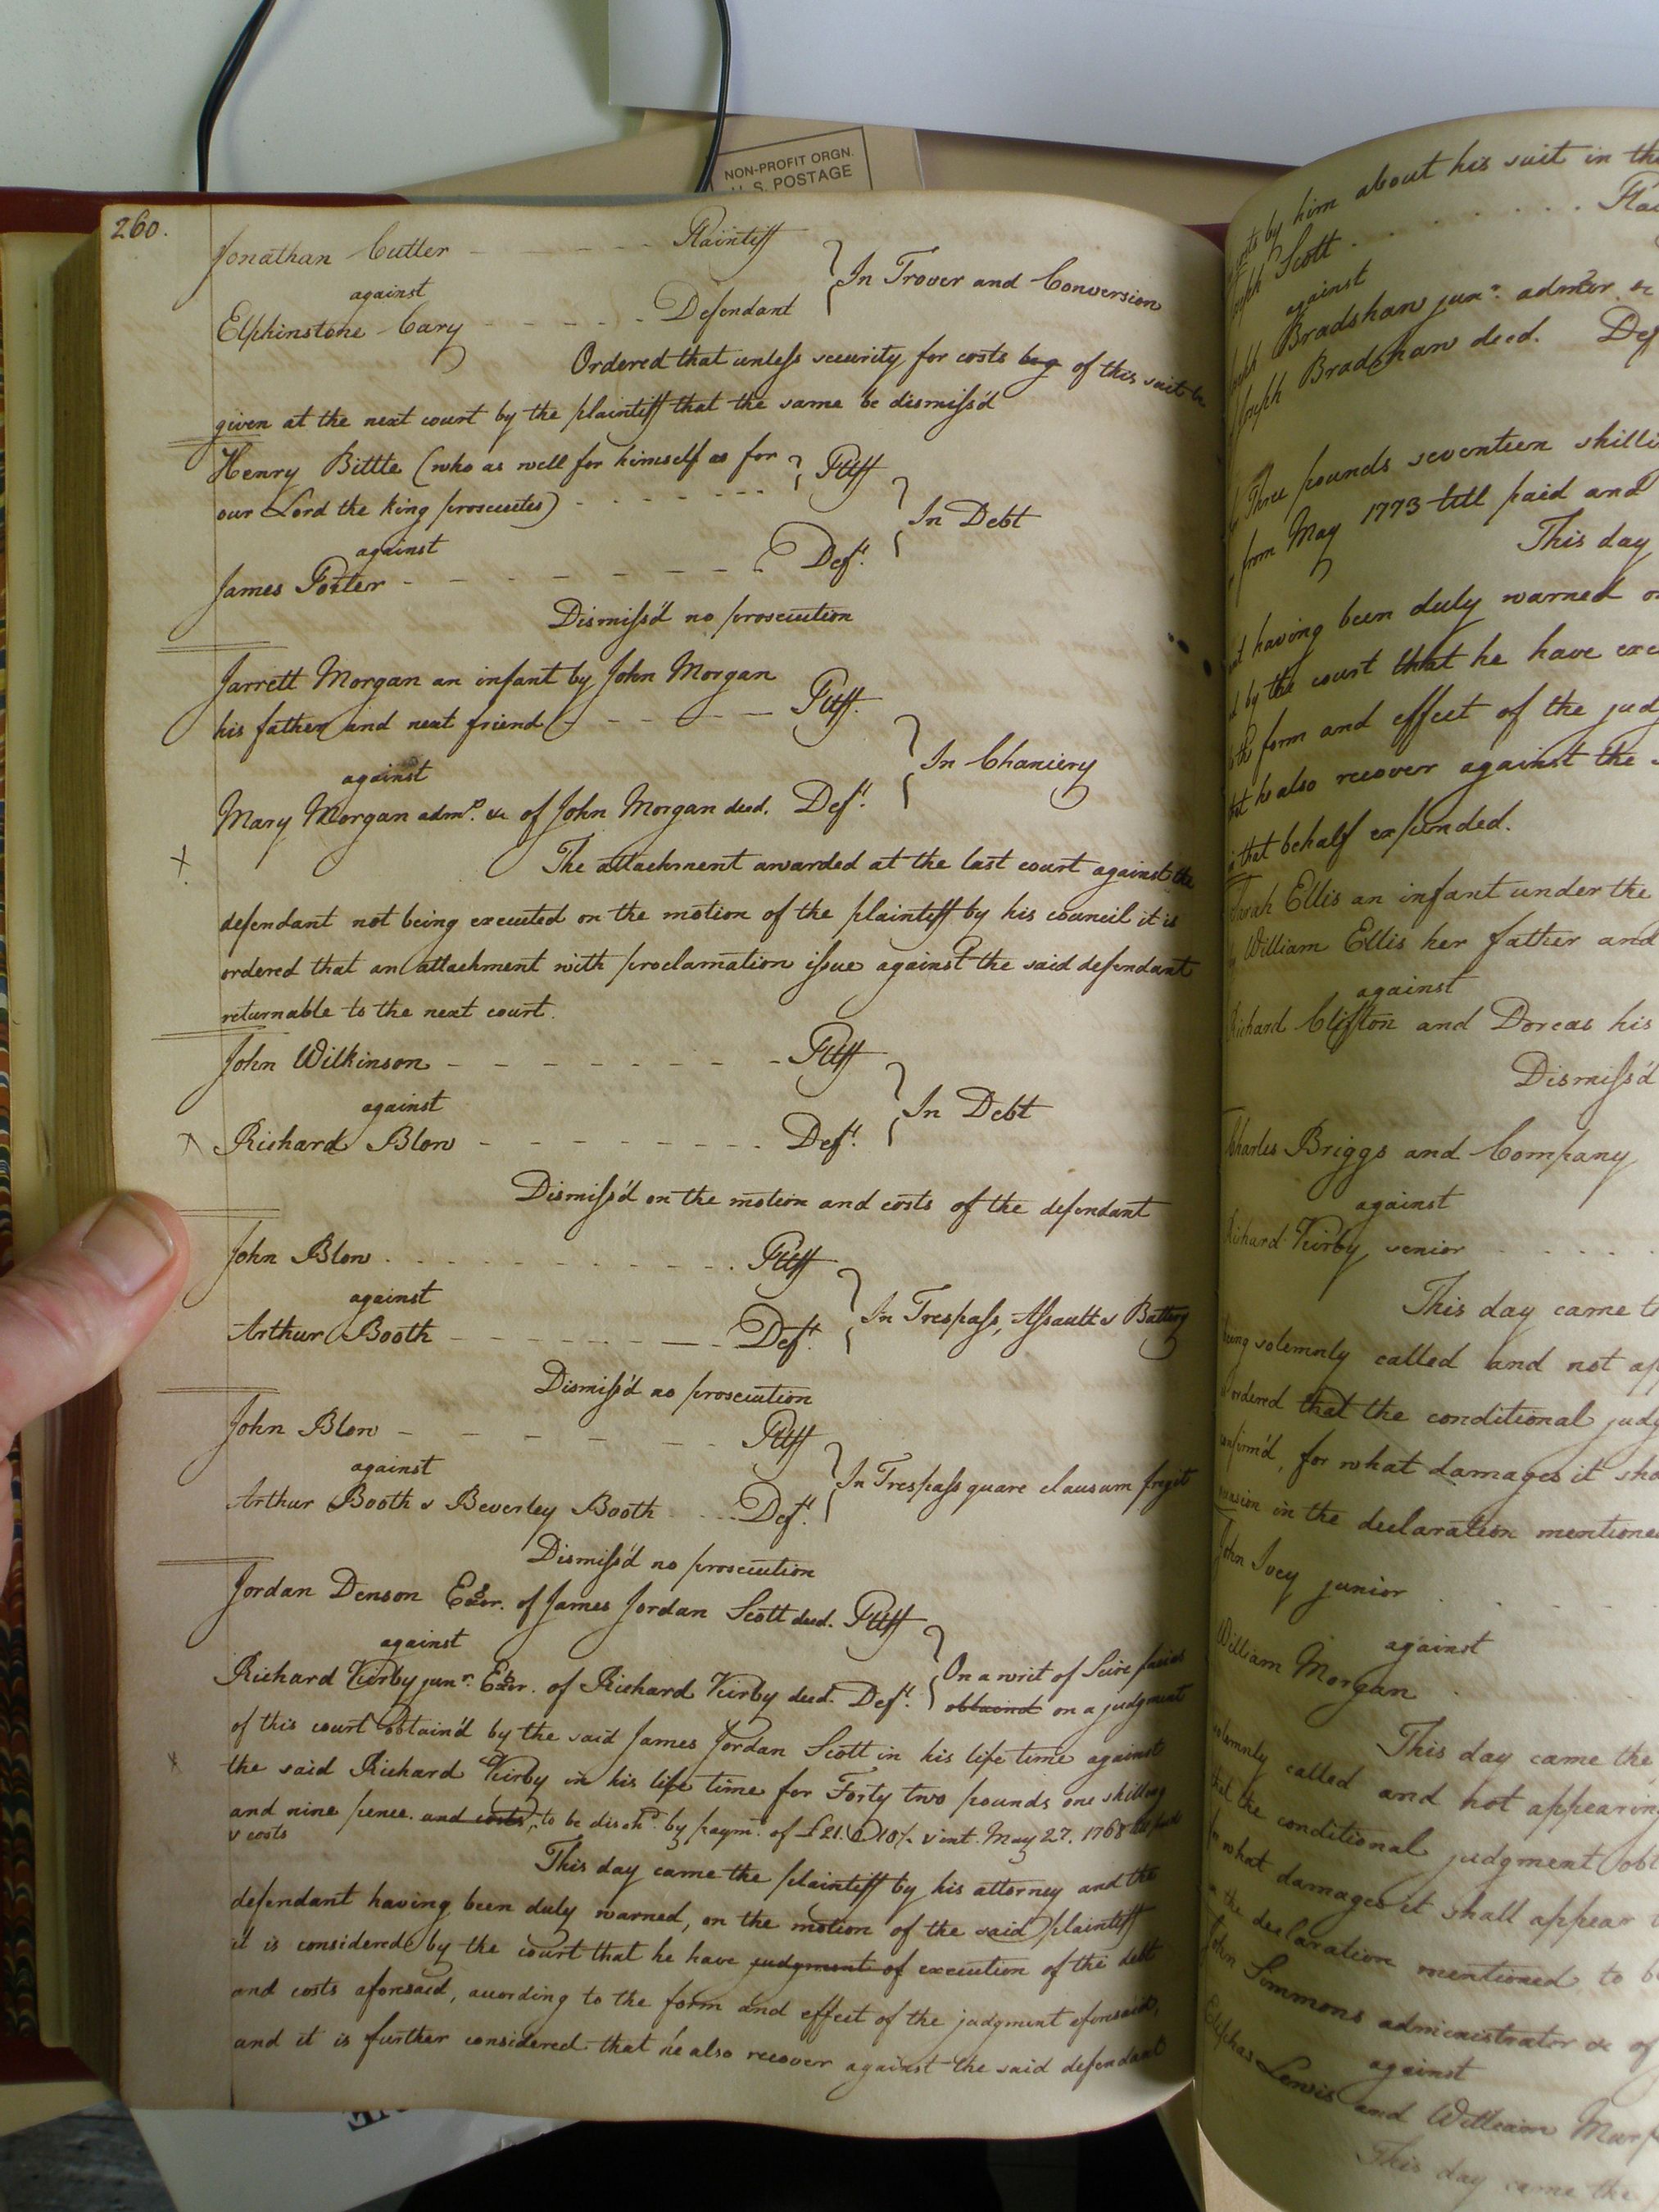 NON-PROFIT ORGN.
U.S. POSTAGE
260.
Jonathan Cutler - - - - - Plaintiff
against
Elphinstone Cary - - - - - Defendant
In Trover and Conversion
Ordered that unless security for costs beg of this suit be
given at the next court by the plaintiff that the same be dismiss'd
Henry Bittle (who as well for himself as for
our Lord the king prosecutes) - - - - - - - Pltff
against
James Porter - - - - - - - - Deft.
In Debt
Dismiss'd no prosecution
Jarrett Morgan an infant by John Morgan
his father and next friend - - - - - Pltff.
against
Mary Morgan admx. &c of John Morgan decd. Deft.
In Chancery
The attachment awarded at the last court against the
defendant not being executed on the motion of the plaintiff by his council it is
ordered that an attachment with proclamation issue against the said defendant
returnable to the next court.
John Wilkinson - - - - - - - - Pltff
against
Richard Blow - - - - - - - - Deft.
In Debt
Dismiss'd on the motion and costs of the defendant
John Blow . . . . . . . . . . . . Pltff
against
Arthur Booth - - - - - - - - Deft.
In Trespass, Assault & Battery
Dismiss'd no prosecution
John Blow - - - - - - - Pltff
against
Arthur Booth & Beverley Booth . . . . Deft.
In Trespass quare clausum fregit
Dismiss'd no prosecution
Jordan Denson Exor. of James Jordan Scott decd. Pltff
against
Richard Kirby junr. Exor. of Richard Kirby decd. Deft.
On a writ of Scire facias
obtaind on a judgment
of this court obtain'd by the said James Jordan Scott in his life time against
the said Richard Kirby in his life time for Forty two pounds one shilling
and nine pence and costs, to be disch'd. by paymt. of £21. 0. 10½ & int. May 27. 1768 till paid
& costs
This day came the plaintiff by his attorney and the
defendant having been duly warned, on the motion of the said plaintiff
it is considered by the court that he have judgment of execution of the debt
and costs aforesaid, according to the form and effect of the judgment aforesaid,
and it is further considered that he also recover against the said defendant
by him about his suit in the
Scott . . . . . . . . Plai
against
Bradshaw junr. admor. &c
Joseph Bradshaw decd. Def
Three pounds seventeen shilli
from May 1773 till paid and
This day
having been duly warned on
by the court that he have exe
form and effect of the judg
he also recover against the s
that behalf expended.
Sarah Ellis an infant under the
William Ellis her father and
against
Richard Clifton and Dorcas his
Dismiss'd
Charles Briggs and Company
against
Richard Kirby senior . . . . .
This day came t
being solemnly called and not ap
ordered that the conditional judg
confirm'd, for what damages it sha
in the declaration mentione
John Ivey junior . . .
against
William Morgan .
This day came the
solemnly called and not appearing
that the conditional judgment obt
for what damages it shall appear t
the declaration mentioned to b
John Simmons administrator &c of
against
Lewis and William Mur
This day came the